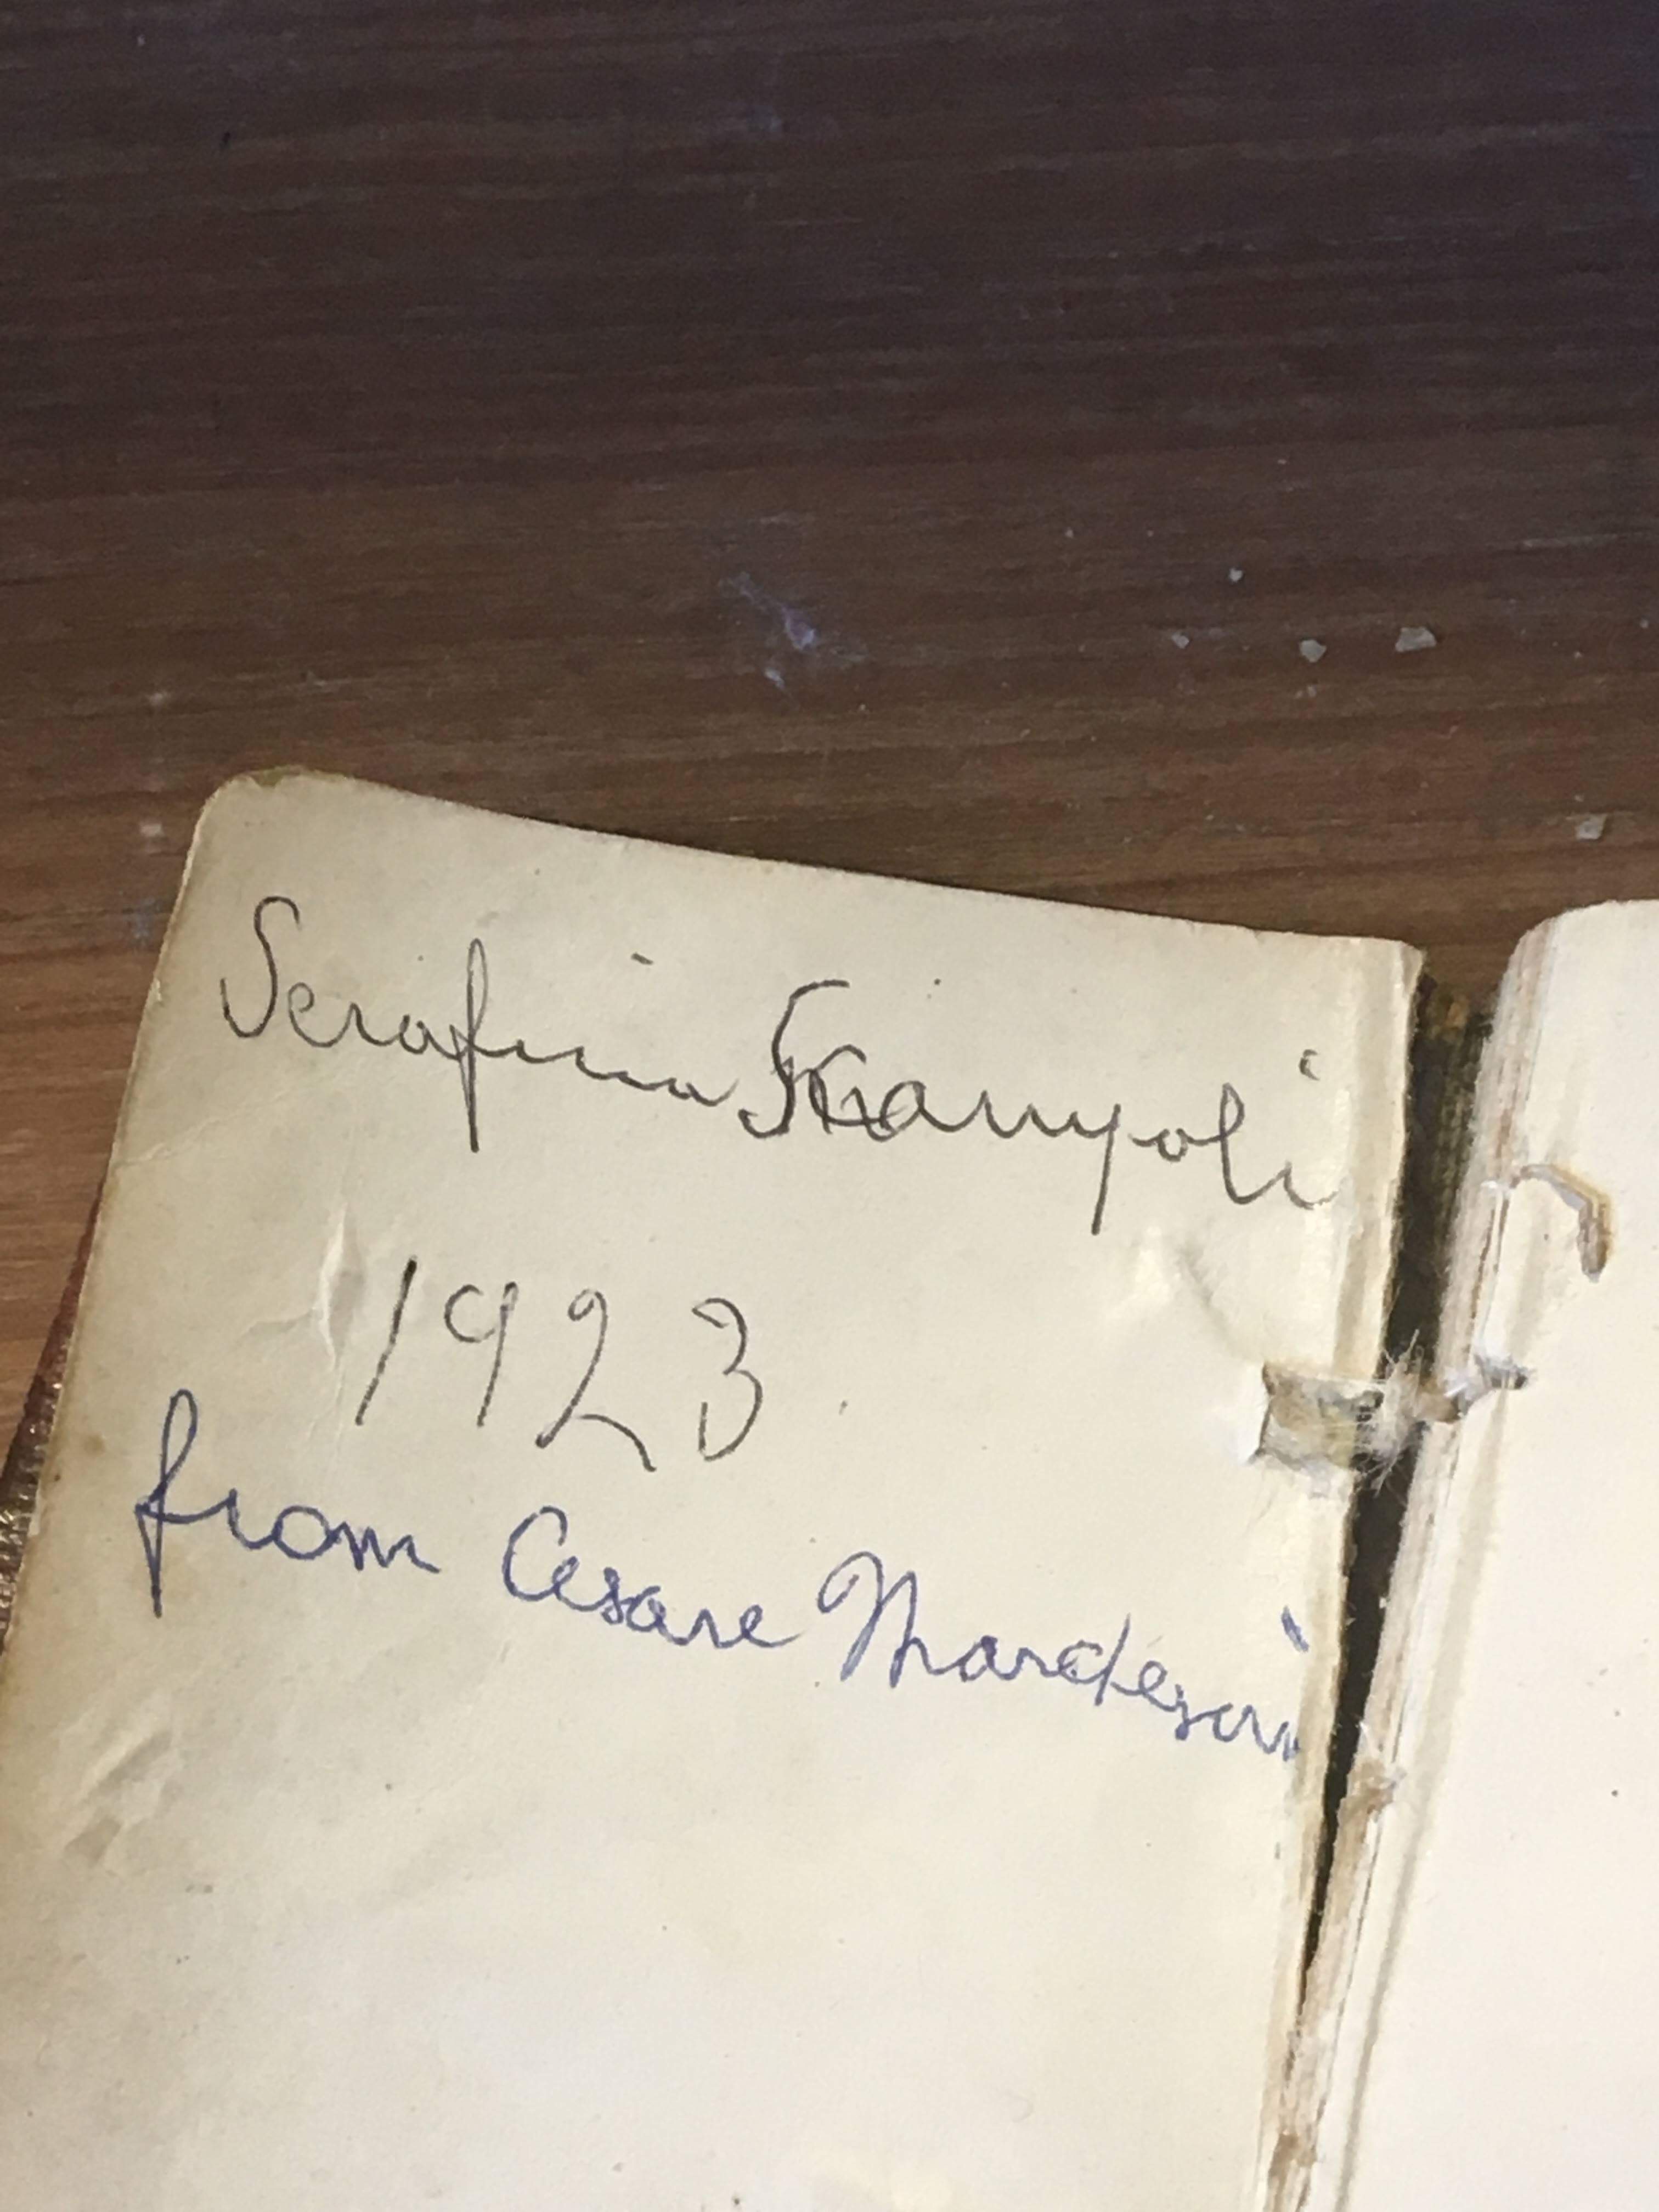 Serafina Skanyoli
1923
from Cesare Mardesari